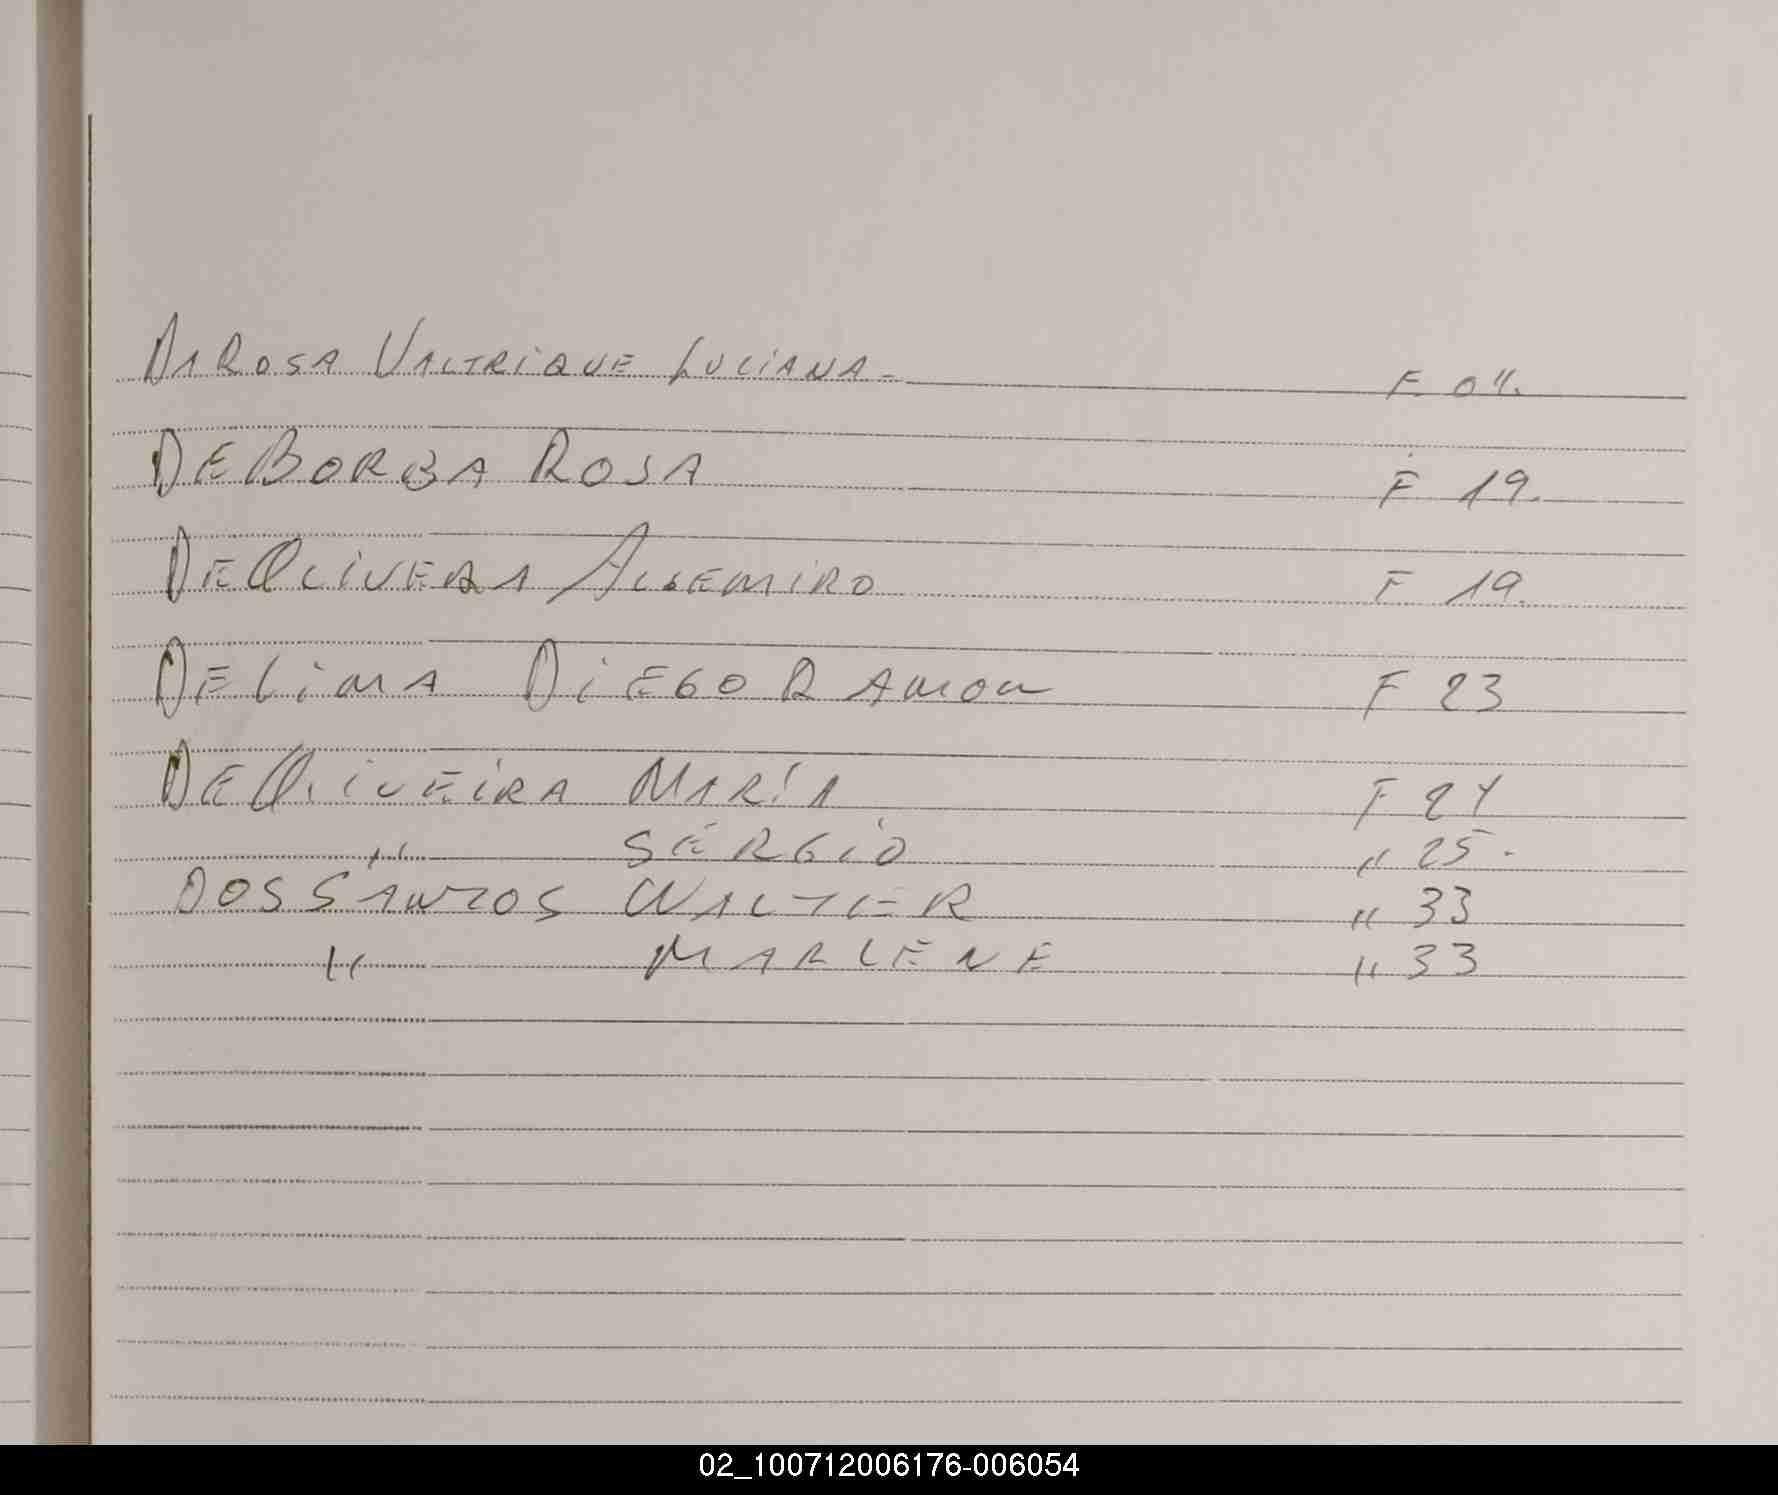 DA ROSA VALTRIQUE LUCIANA - F. 04.
DE BORBA ROSA F 19.
DE OLIVERA ALGEMIRO F 19.
DE LIMA DIEGO RAMON F 23
DE OLIVEIRA MARÍA F 24
" SERGIO " 25.
DOS SANTOS WALTER " 33
" MARLENE " 33
02_100712006176-006054